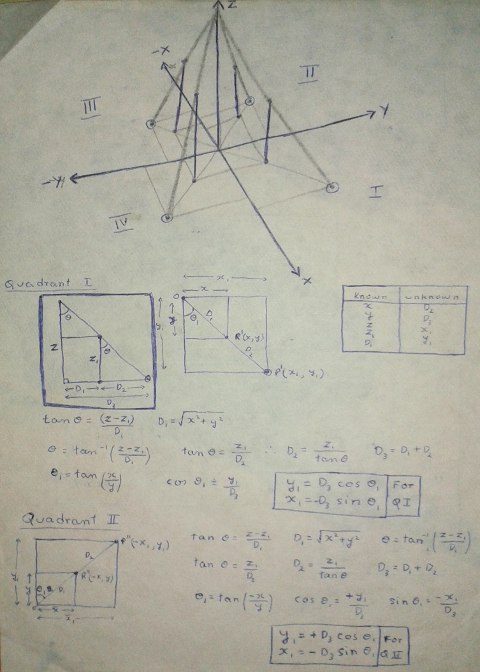 Z
-X
II
III
Y
-Y
I
IV
X
Quadrant I
x₁
x
O
θ
θ₁
D₁
y
y₁
Z
Z₁
θ
P'(x,y)
D₂
D₁
D₂
D₃
P'(x₁, y₁)
Known | unknown
x | D₂
y | D₁
Z | x₁
Z₁ | y₁
tan θ = (z-z₁)/D₁ D₁ = √x²+y²
θ = tan⁻¹(z-z₁/D₁) tan θ = z₁/D₂ ∴ D₂ = z₁/tanθ D₃ = D₁ + D₂
θ₁ = tan(x/y) cos θ₁ = y₁/D₃
y₁ = D₃ cos θ₁ For
x₁ = -D₃ sin θ₁ QI
Quadrant II
P''(-x₁, y₁)
D₂
P''(-x,y)
y₁
y
θ₁
D₁
x
x₁
tan θ = z-z₁/D₁ D₁ = √x²+y² θ = tan⁻¹(z-z₁/D₁)
tan θ = z₁/D₂ D₂ = z₁/tanθ D₃ = D₁ + D₂
θ₁ = tan(-x/y) cos θ₁ = +y₁/D₃ sin θ₁ = -x₁/D₃
y₁ = +D₃ cos θ₁ For
x₁ = -D₃ sin θ₁ QII